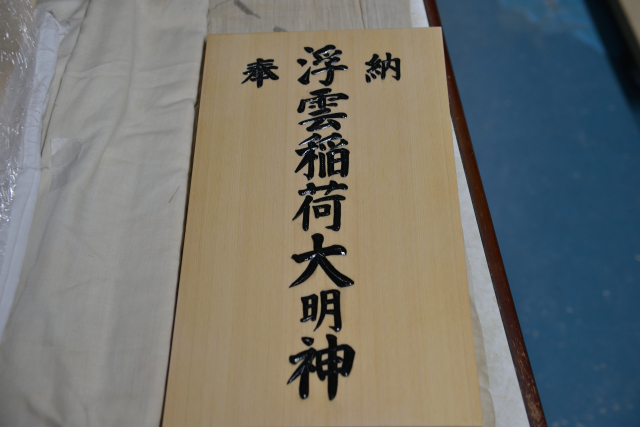 奉納
浮雲稲荷大明神